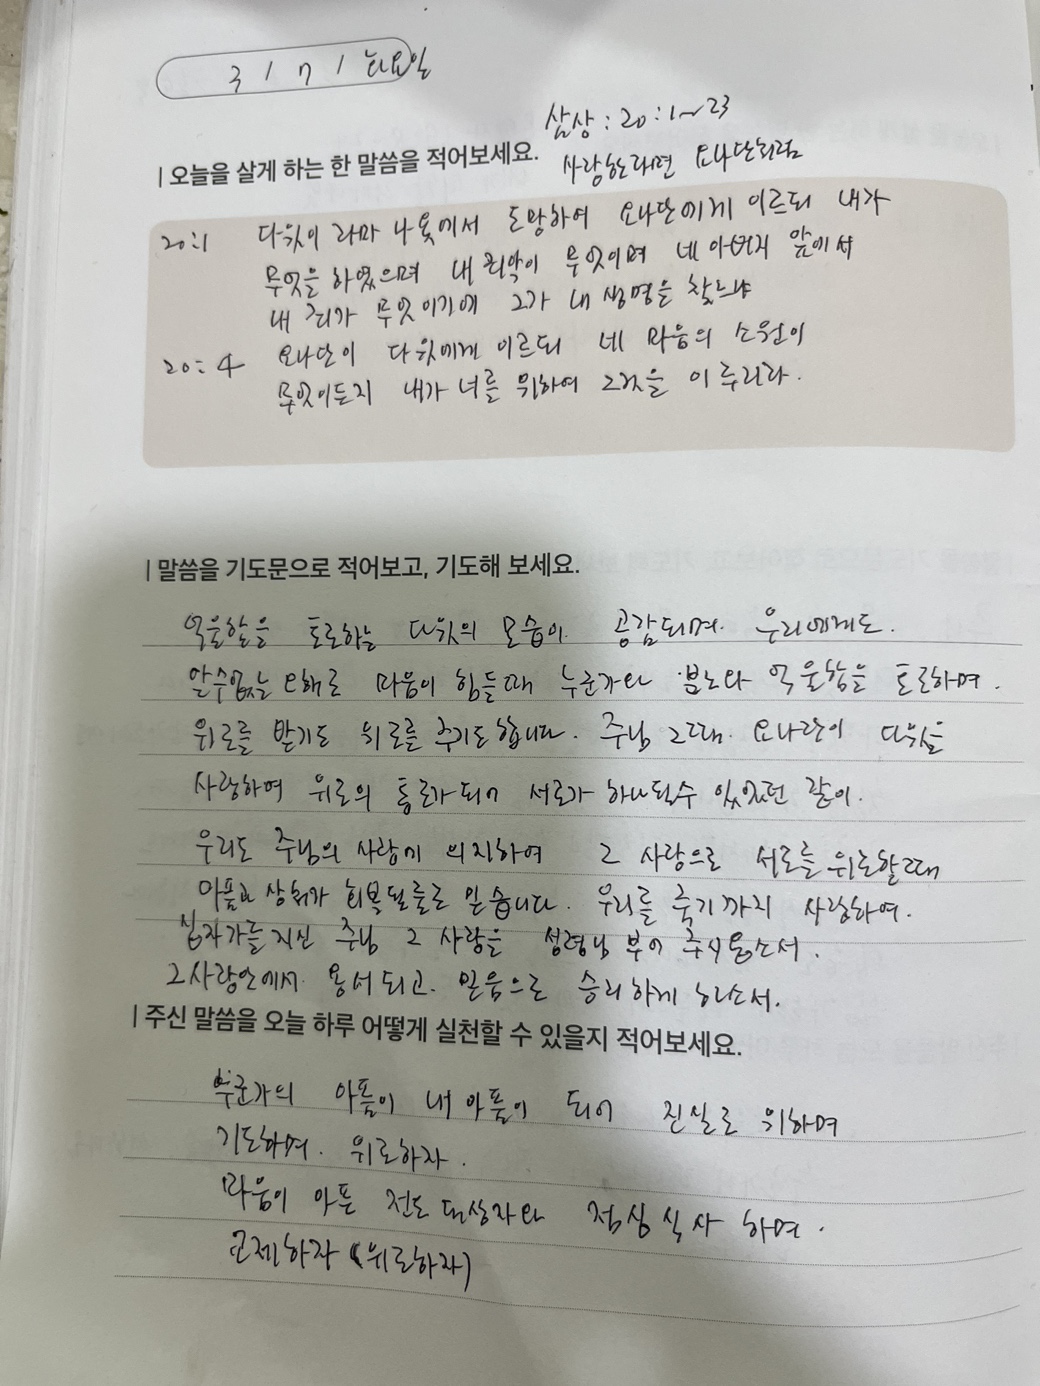 3 / 7 / 화요일
삼상 : 20 : 1~23
| 오늘을 살게 하는 한 말씀을 적어보세요.
사랑한다면 요나단처럼
20:1 다윗이 라마 나욧에서 도망하여 요나단에게 이르되 내가
무엇을 하였으며 내 죄악이 무엇이며 네 아버지 앞에서
내 죄가 무엇이기에 그가 내 생명을 찾느냐
20:4 요나단이 다윗에게 이르되 네 마음의 소원이
무엇이든지 내가 너를 위하여 그것을 이루리라.
| 말씀을 기도문으로 적어보고, 기도해 보세요.
억울함을 토로하는 다윗의 모습이 공감되며. 우리에게도.
알수없는 오해로 마음이 힘들때 누군가와 분노와 억울함을 토로하며.
위로를 받기도 위로를 주기도 합니다. 주님 그때. 요나단이 다윗을
사랑하여 위로의 통로가 되어 서로가 하나될수 있었던 같이.
우리도 주님의 사랑에 의지하여 그 사랑으로 서로를 위로할때
아픔과 상처가 회복될줄로 믿습니다. 우리를 죽기까지 사랑하여.
십자가를 지신 주님 그 사랑을 성령님 부어 주시옵소서.
그사랑안에서 용서되고. 믿음으로 승리하게 하소서.
| 주신 말씀을 오늘 하루 어떻게 실천할 수 있을지 적어보세요.
누군가의 아픔이 내 아픔이 되어 진실로 위하며
기도하며. 위로하자.
마음이 아픈 전도 대상자와 점심식사 하며.
교제하자 (위로하자)